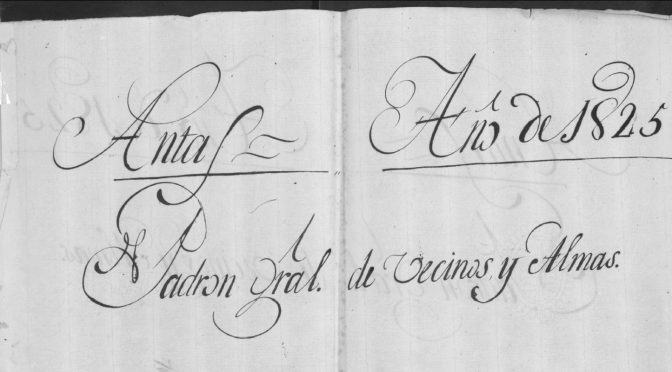 Antas Año de 1825
Padron Gral. de Vecinos y Almas.